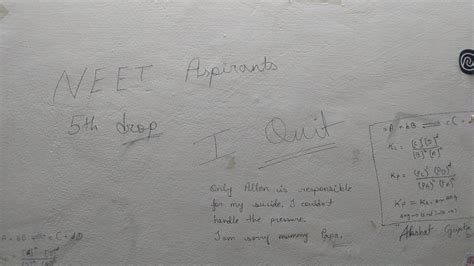 NEET Aspirants
5th drop
I Quit
Only Allen is responsible
for my suicide, I couldn't
handle the pressure.
I am sorry mummy Papa.
aA + bB ⇌ cC + dD
Kc = [C]^c [D]^d / [B]^b [A]^a
Kp = (Pc)^c (PD)^d / (PA)^a (PB)^b
Akshat Gupta